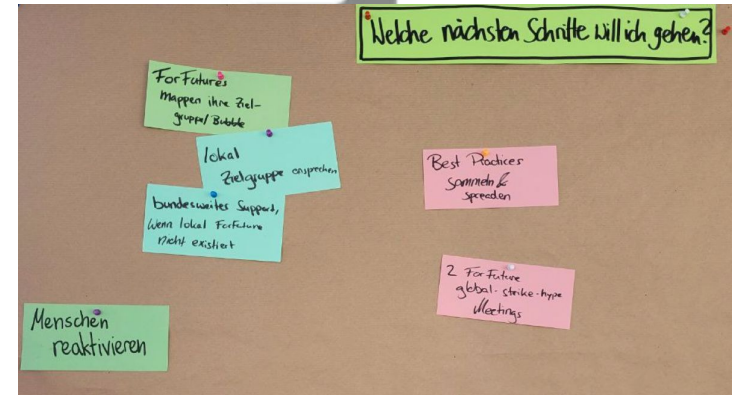 Welche nächsten Schritte will ich gehen?
For Futures
mappen ihre Ziel-
gruppe/Bubble
lokal
Zielgruppe ansprechen
bundesweites Support,
wenn lokal ForFuture
nicht existiert
Menschen
reaktivieren
Best Practices
sammeln &
spreaden
2 For Future
global-strike-hype
Meetings